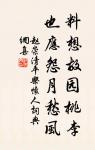 料想故园桃李
也应怨月愁风
赵崇清平乐怀人词典
网喜